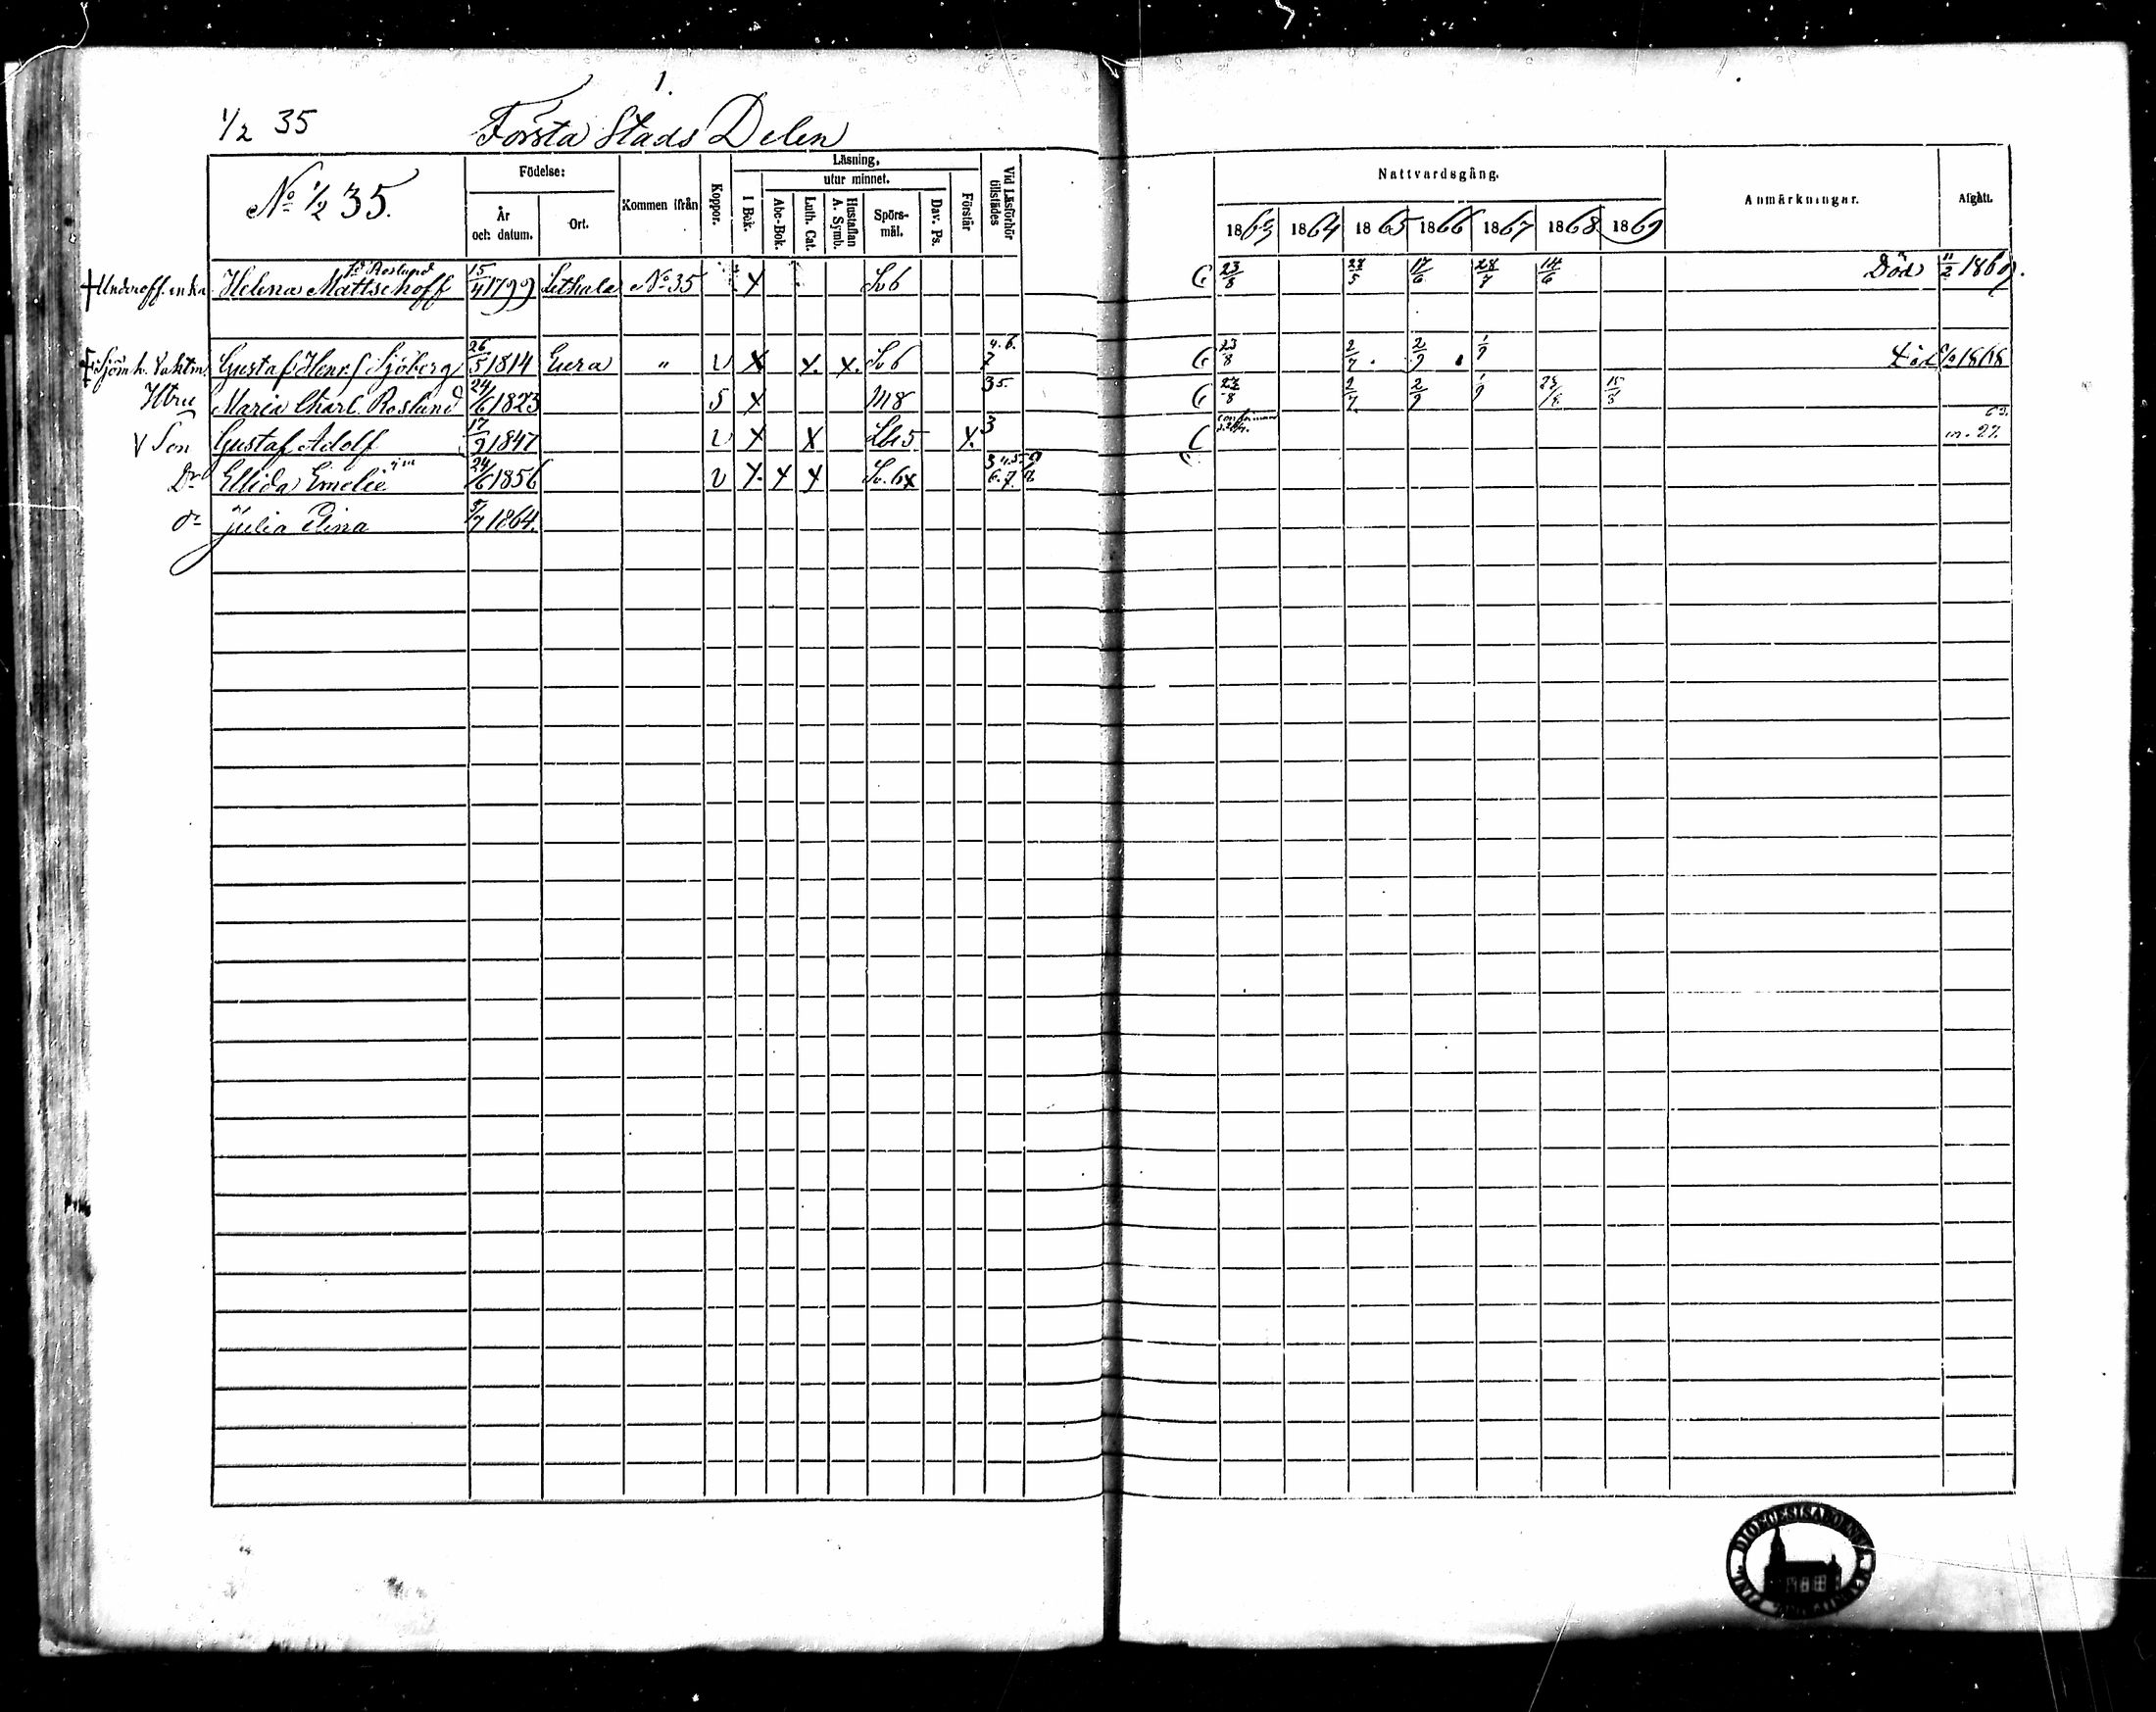 1.
1/2 35 Första Stads Delen
No 1/2 35.
Födelse: År och datum. Ort.
Kommen ifrån
Koppor.
Läsning, utur minnet.
I Bok. Abc-Bok. Luth. Cat. Hustaflan A. Symb. Spörsmål. Dav. Ps. Förstår
Vid Läsförhör tillstädes
Nattvardsgång.
1863 1864 1865 1866 1867 1868 1869
Anmärkningar.
Afgått.
fd Roslund
† Underoff. enka Helena Mattschoff 15/4 1799 Lethala No 35 X Sv 6 C 23/8 28/5 17/6 28/7 14/6 Död 11/2 1869.
† Sjöm. h. Vaktm. Gustaf Henr. Sjöberg 26/5 1814 Eura " v X X. X. Sv 6 4. 6. 7 C 23/8 2/7 . 2/9 . 1/9 Död 1868
Htru Maria Charl. Roslund 24/6 1823 S X M 8 35 C 23/8 2/7 2/9 1/9 15/8
V Son Gustaf Adolf 17/9 1847 v X X 5 X. 3 C m. 27.
Dr Ellida Emelie 24/6 1856 v X. X X Sv. 6x 6. 7.
dr Julia Elina 5/7 1864.
DIOECESIS ABOENSIS